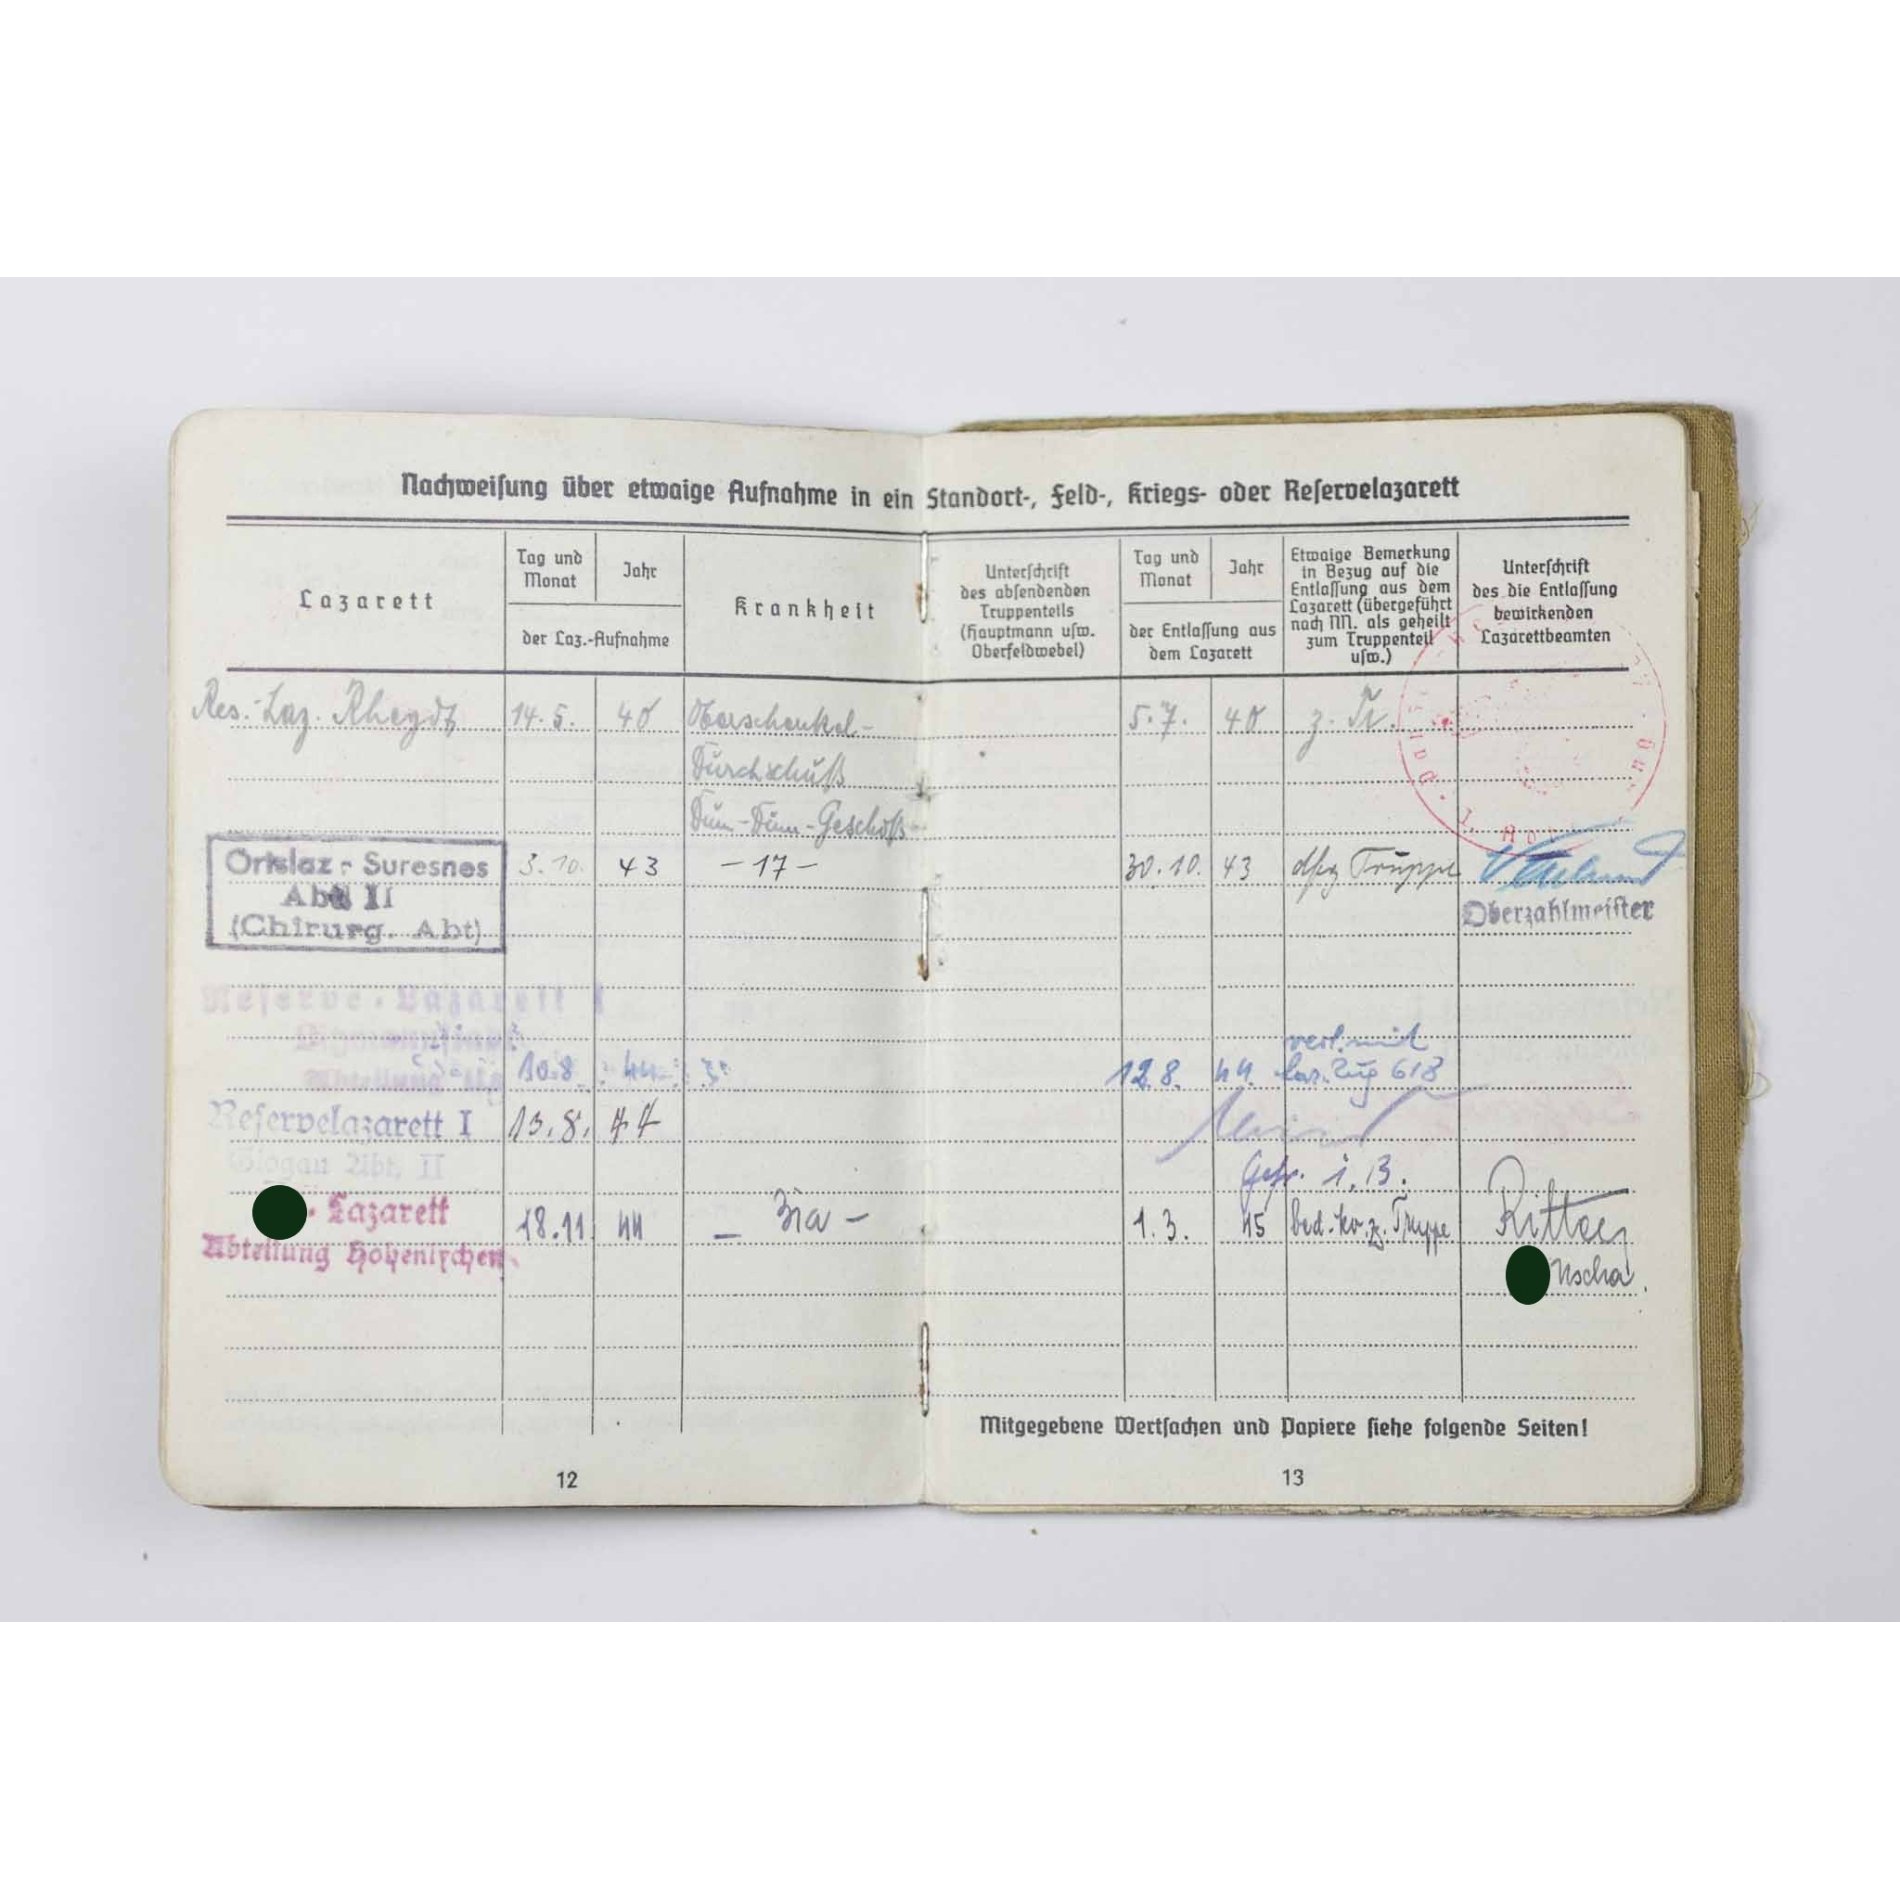 Nachweisung über etwaige Aufnahme in ein Standort-, Feld-, Kriegs- oder Reservelazarett
Lazarett
Tag und
Monat
Jahr
der Laz.-Aufnahme
Krankheit
Unterschrift
des absendenden
Truppenteils
(Hauptmann usw.
Oberfeldwebel)
Tag und
Monat
Jahr
der Entlassung aus
dem Lazarett
Etwaige Bemerkung
in Bezug auf die
Entlassung aus dem
Lazarett (übergeführt
nach M. als geheilt
zum Truppenteil
usw.)
Unterschrift
des die Entlassung
bewirkenden
Lazarettbeamten
Res.-Laz. Rheydt 14.5. 40 Oberschenkel- 5.7. 40 z. Tr.
Durchschuß
Dum-Dum-Geschoß
Ortslaz - Suresnes 3.10. 43 -17- 30.10. 43 Truppe
Abt II
(Chirurg. Abt)
Oberzahlmeister
Reserve-Lazarett I
verl. mit
Abteilung 10.8. 44 12.8. 44. Laz. Zug 613
Reservelazarett I 13.8. 44
Glogau Abt. II
Gefr. i.B.
Lazarett 18.11. 44 1.3. 45 bed. kv. z. Truppe Ritter
Abteilung Hohenlychen
Uscha.
Mitgegebene Wertsachen und Papiere siehe folgende Seiten!
12
13